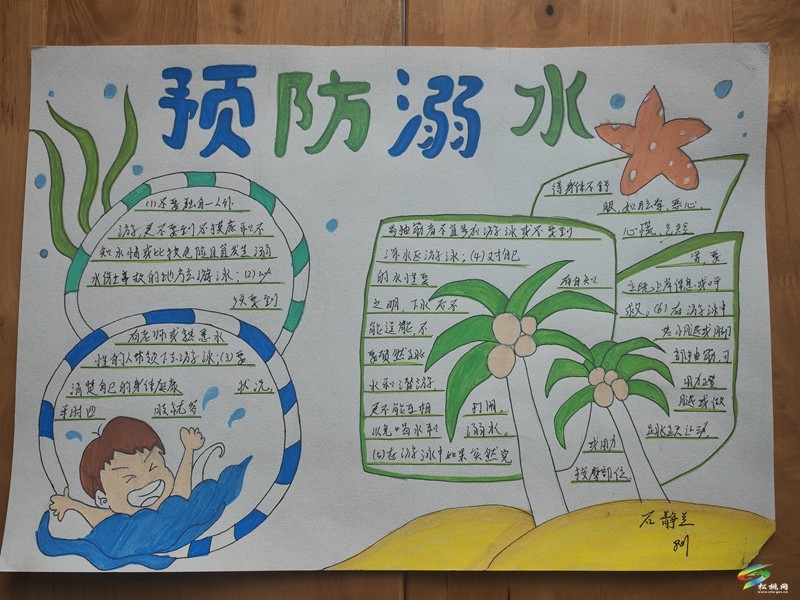 预防溺水
(1)不要独自一人外
游,更不要到不摸底和不
知水情或比较危险且易发生溺
水伤亡事故的地方去游泳;(2)必
须要到
有老师或熟悉水
性的人带领下去游泳;(3)要
清楚自己的身体健康
状况,
平时四
肢就容
易抽筋者不宜参加游泳或不要到
深水区游泳;(4)对自己
的水性要
有自知
之明,下水后不
能逞能,不
要贸然跳水
水和潜游,
更不能互相
打闹,
以免呛水和
溺水。
(5)在游泳中如果突然觉
得身体不舒
服,如眩晕、恶心、
心慌、气短
等,要
立即上岸休息或呼
救。(6)在游泳中
若小腿或脚
部抽筋,可
用力蹬
腿或做
跳跃动
或用力
按摩部位
石静兰
松桃网